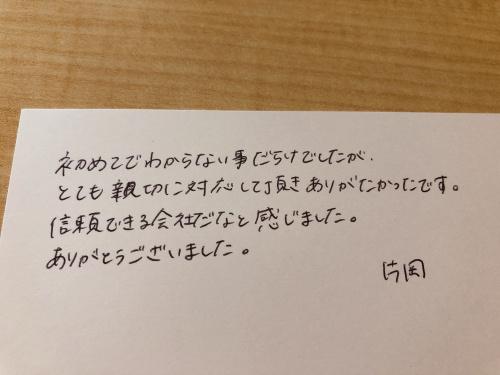 初めてでわからない事だらけでしたが、
とても親切に対応して頂きありがたかったです。
信頼できる会社だなと感じました。
ありがとうございました。
片岡